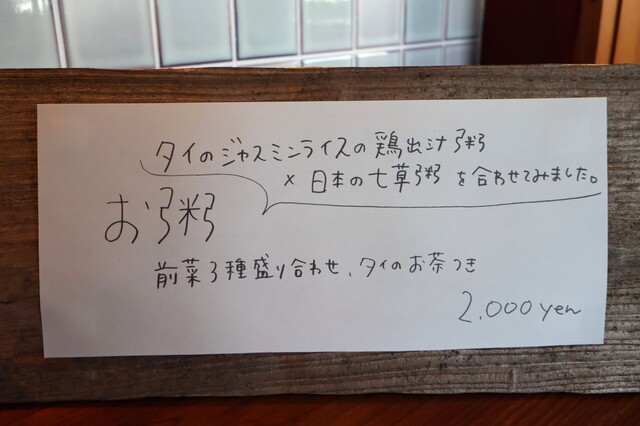 タイのジャスミンライスの鶏出汁粥
×日本の七草粥を合わせてみました。
お粥
前菜3種盛り合わせ、タイのお茶つき
2.000yen